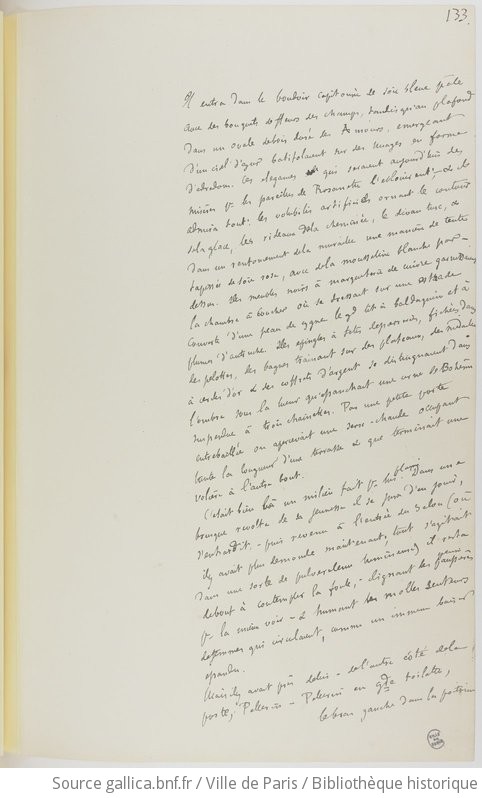 133.
Il entra dans le boudoir capitonné de soie bleue pâle
avec des bouquets de fleurs des champs, tandis qu'au plafond
dans un ovale de bois doré des Amours, émergeant
d'un ciel d'azur batifolaient sur des nuages en forme
d'édredon. Ces élégances qui seraient aujourd'hui des
misères pr les pareilles de Rosanette l'éblouirent - & il
admira tout: les volubilis artificiels ornant le contour
de la glace, les rideaux de la cheminée, le divan turc, &
dans un renfoncement de la muraille une manière de tente
tapissée de soie rose, avec de la mousseline blanche par-
dessus. Des meubles noirs à marqueterie de cuivre garnissaient
la chambre à coucher où se dressait sur une estrade
couverte d'une peau de cygne le gd lit à baldaquin et à
plumes d'autruche. Des épingles à têtes de pierreries, fichées dans
les pelottes, des bagues traînant sur des plateaux, des médaillons
à cercles d'or & des coffrets d'argent se distinguaient dans
l'ombre sous la lueur qu'épanchait une urne de Bohême
suspendue à trois chaînettes. Par une petite porte
entrebaillée on apercevait une serre-chaude occupant
toute la largeur d'une terrasse & que terminait une
volière à l'autre bout.
C'était bien là un milieu fait pr lui plaire. Dans une
brusque révolte de sa jeunesse il se jura d'en jouir,
s'enhardit. - puis revenu à l'entrée du Salon (où
il y avait plus de monde maintenant, tout s'agitait
dans une sorte de pulvérulence lumineuse) il resta
debout à contempler la foule, - clignant les yeux
pr la mieux voir - & humant les molles senteurs
de femmes qui circulaient, comme un immense baiser
épandu.
Mais il y avait près de lui - de l'autre côté de la
porte, Pellerin - Pellerin en gde toilette,
le bras gauche dans la poitrine
Source gallica.bnf.fr / Ville de Paris / Bibliothèque historique